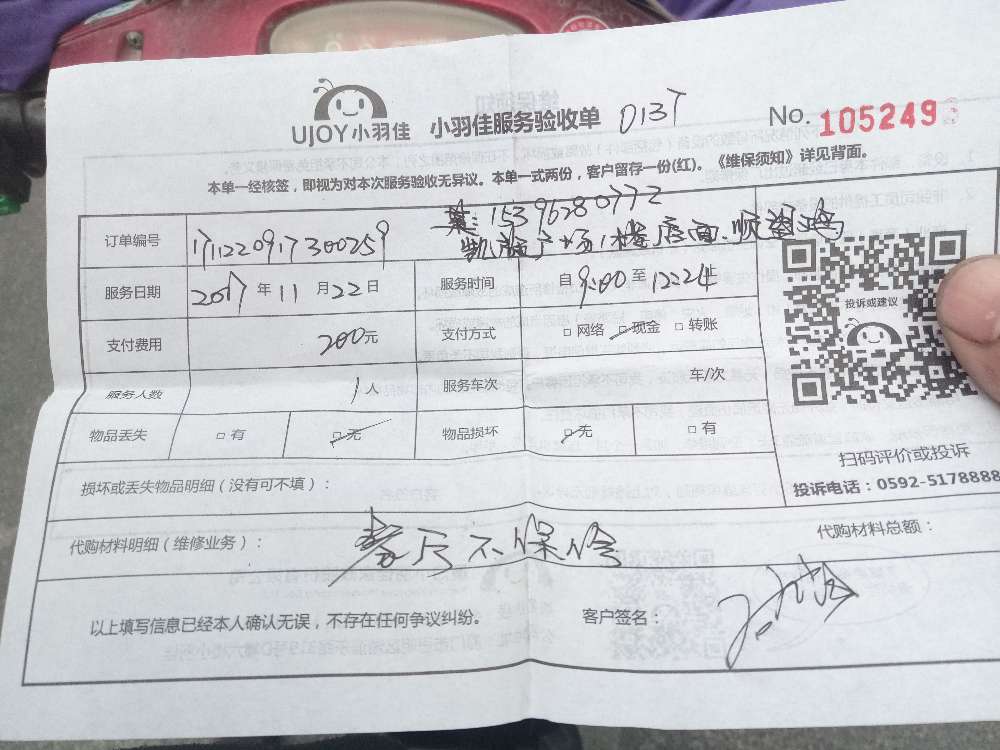 UJOY小羽佳 小羽佳服务验收单 D13T No. 1052493
本单一经核签，即视为对本次服务验收无异议。本单一式两份，客户留存一份(红)。《维保须知》详见背面。
葉：15396280772
订单编号 1711220917300259
凯旋广场1楼店面.顺
服务日期 2017年11月22日 服务时间 自9:00至12224止
支付费用 200元 支付方式 □网络 □现金 □转账
服务人数 1人 服务车次 车/次
物品丢失 □有 □无 物品损坏 □无 □有
投诉或建议
扫码评价或投诉
投诉电话：0592-5178888
损坏或丢失物品明细（没有可不填）：
代购材料明细（维修业务）： 不保修 代购材料总额：
以上填写信息已经本人确认无误，不存在任何争议纠纷。 客户签名：